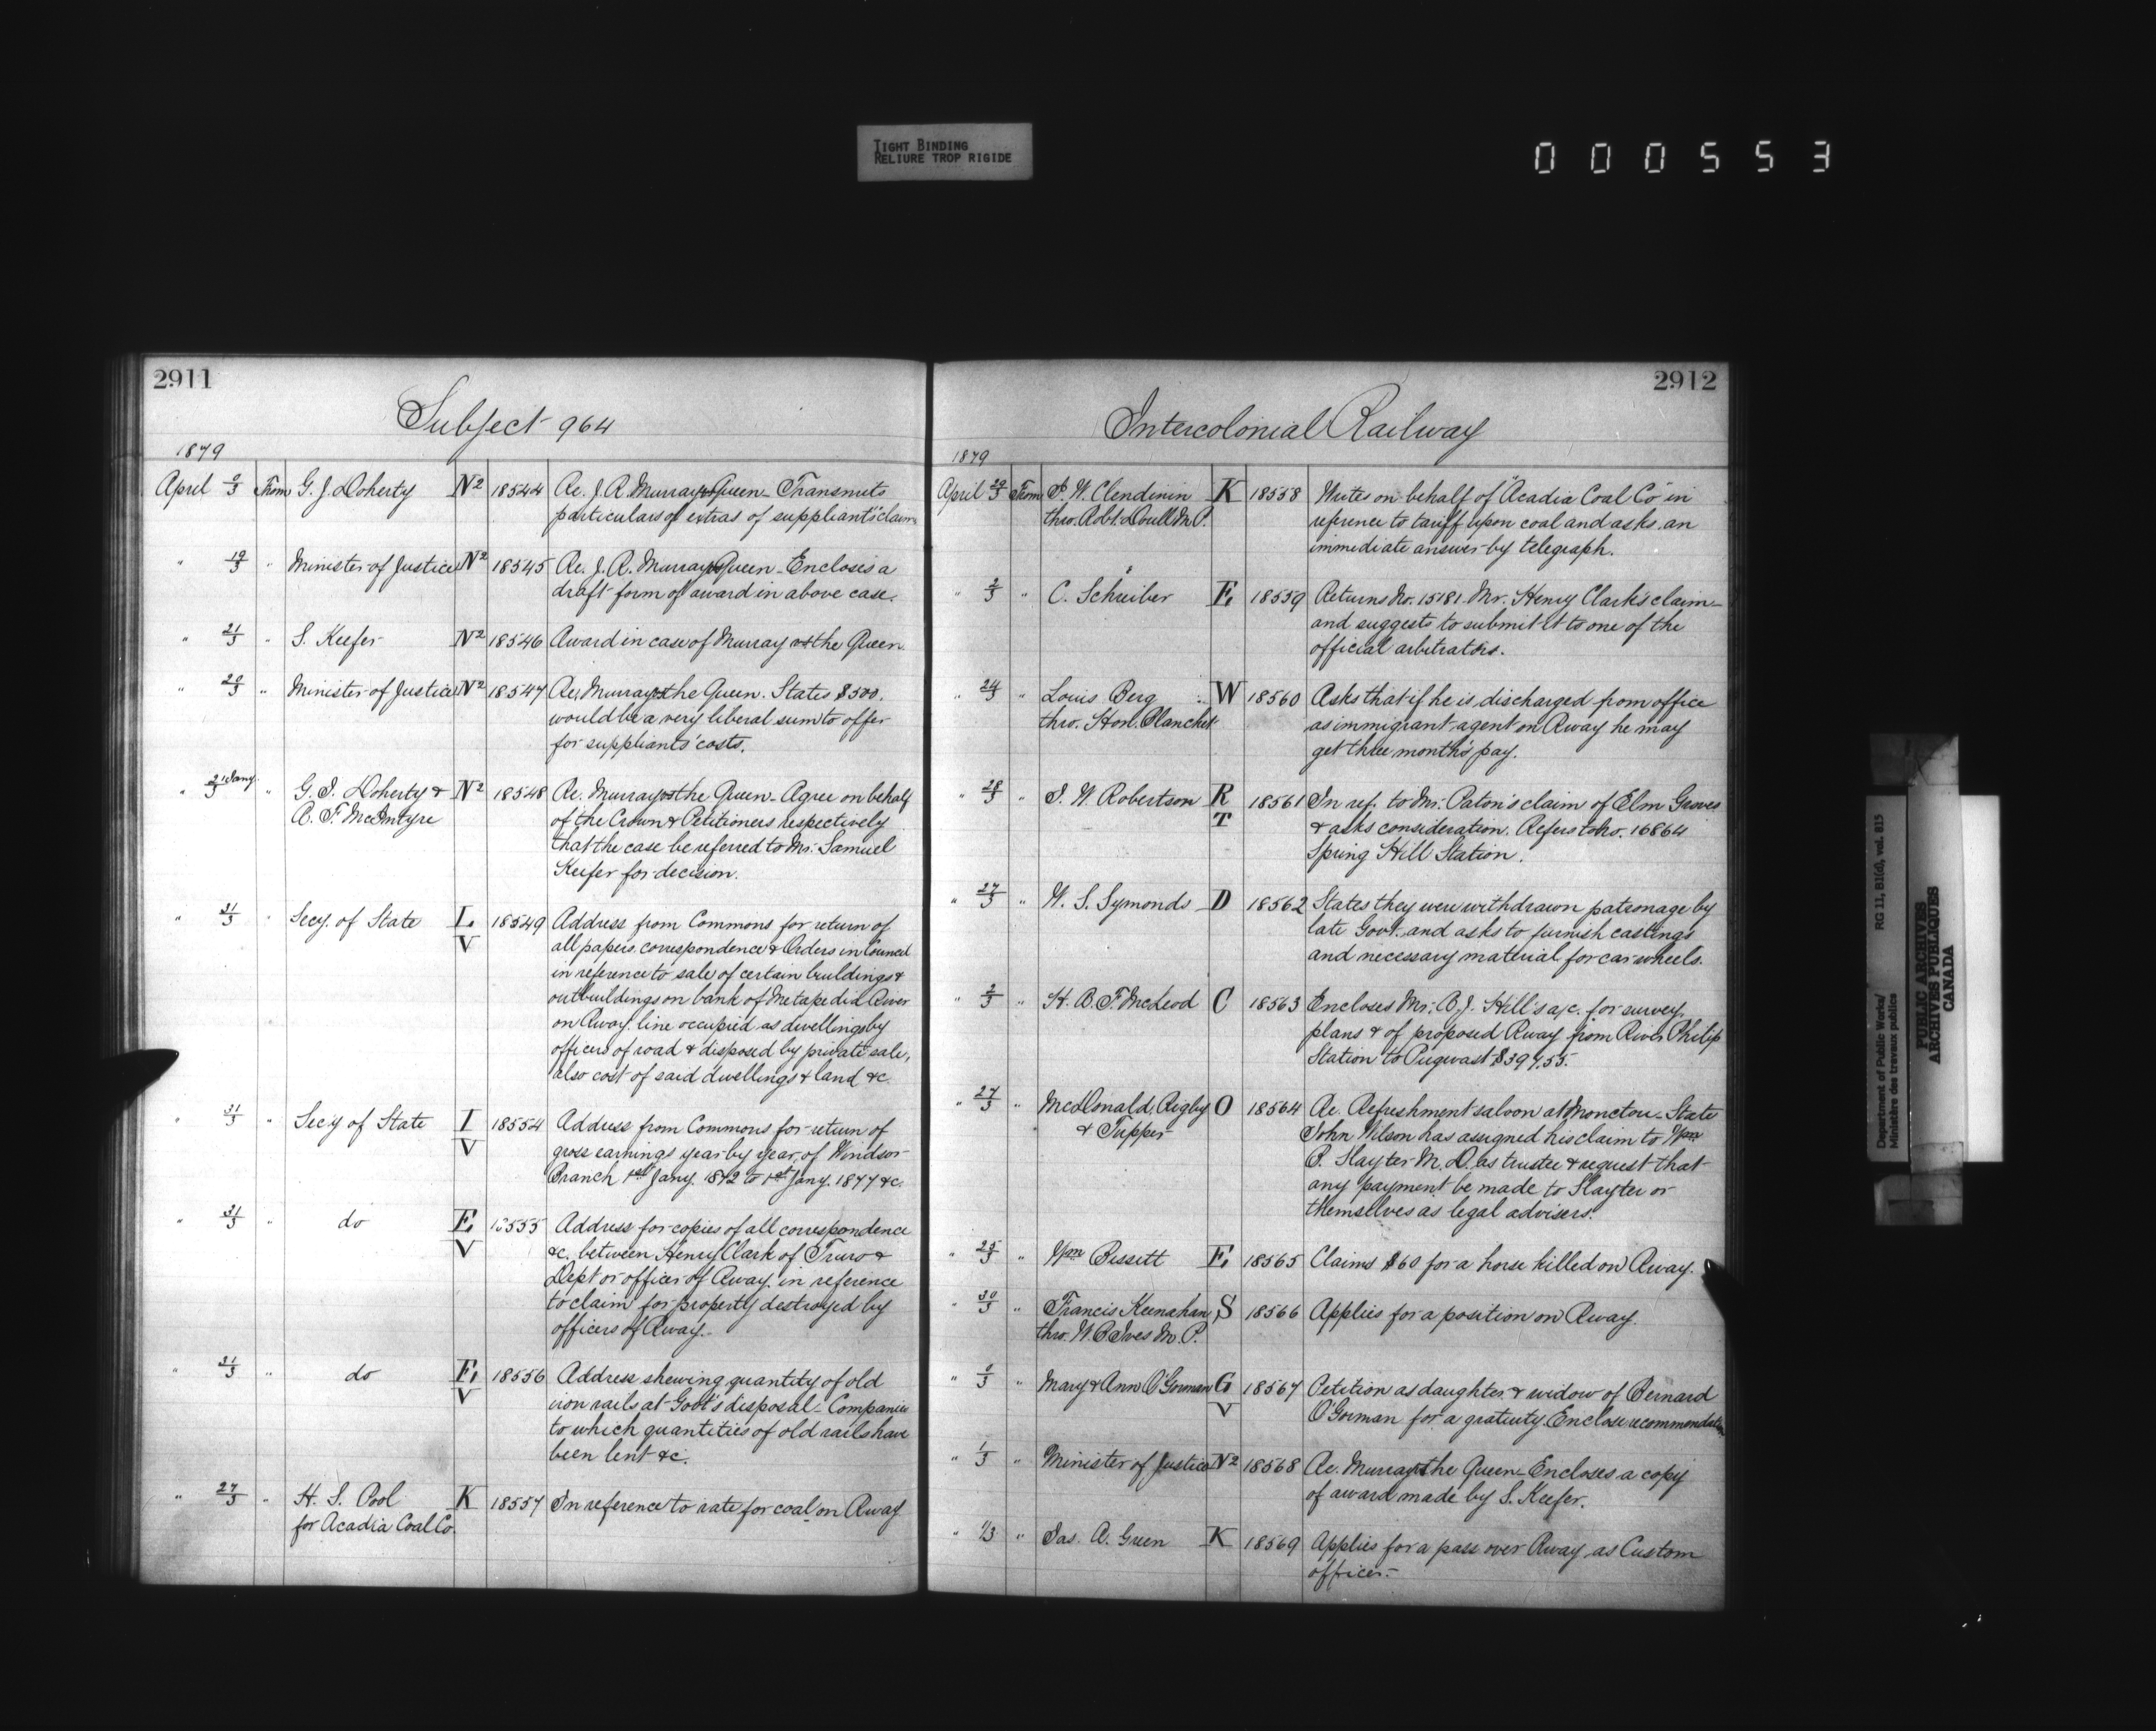 TIGHT BINDING
RELIURE TROP RIGIDE
000553
2911
Subject 964
1879
April 9/3 From G. J. Doherty N2 18544 Re. J. R. Murray vs Queen - Transmits
particulars of extras of suppliants' claim
" 19/3 " Minister of Justice N2 18545 Re. J. R. Murray vs Queen - Encloses a
draft form of award in above case.
" 21/3 " S. Keefer N2 18546 Award in case of Murray vs the Queen.
" 20/3 " Minister of Justice N2 18547 Re. Murray vs the Queen. States $500.
would be a very liberal sum to offer
for suppliants' costs.
" 21 Jany. " G. J. Doherty & N2 18548 Re. Murray vs the Queen - Agree on behalf
A. F. McIntyre of the Crown & Petitioners respectively
that the case be referred to Mr. Samuel
Keefer for decision.
" 31/3 " Secy. of State L 18549 Address from Commons for return of
V all papers, correspondence & Orders in Council
in reference to sale of certain buildings &
outbuildings on bank of Metapedia River
on Rway. line occupied as dwellings by
officers of road & disposed by private sale,
also cost of said dwellings & land &c.
" 31/3 " Secy of State I 18554 Address from Commons for return of
V gross earnings year by year, of Windsor
Branch 1st Jany. 1872 to 1st Jany. 1877 &c.
" 31/3 " do E 18555 Address for copies of all correspondence
V &c. between Henry Clark of Truro &
Dept or officer of Rway. in reference
to claim for property destroyed by
officers of Rway.-
" 31/3 " do E 18556 Address shewing quantity of old
V iron rails at Govt's disposal - Companies
to which quantities of old rails have
been lent &c.
" 27/3 " H. S. Pool K 18557 In reference to rate for coal on Rway
for Acadia Coal Co.
2912
Intercolonial Railway
1879
April 29/3 From J. W. Clendinin K 18558 Writes on behalf of "Acadia Coal Co" in
thro. Robt. Doull M.P. reference to tariff upon coal and asks an
immediate answer by telegraph.
" 2/3 " C. Schreiber E 18559 Returns No. 15181. Mr. Henry Clark's claim -
and suggests to submit it to one of the
official arbitrators.
" 24/3 " Louis Berg W 18560 Asks that if he is discharged from office
thro. Hon. Blanchet as immigrant agent on Rway he may
get three months' pay.
" 28/3 " J. W. Robertson R 18561 In ref. to Mr. Paton's claim of Elm Groves
T & asks consideration. Refers to No. 16864
Spring Hill Station.
" 27/3 " W. S. Symonds D 18562 States they were withdrawn patronage by
late Govt. and asks to furnish castings
and necessary material for car wheels.
" 2/3 " H. A. F. McLeod C 18563 Encloses Mr. B. J. Hill's a/c. for survey,
plans & of proposed Rway from River Philip
Station to Pugwast $397.55.
" 27/3 " McDonald, Rigby O 18564 Re. Refreshment saloon at Moncton - State
& Tupper John Wilson has assigned his claim to Wm
P. Slayter M.D. as trustee & request that
any payment be made to Slayter or
themselves as legal advisers.
" 25/3 " Wm Bissett E 18565 Claims $60 for a horse killed on Rway.
" 30/3 " Francis Keenahan S 18566 Applies for a position on Rway.
thro. W. B. Ives M.P.
" /3 " Mary & Ann O'Gorman G 18567 Petition as daughter & widow of Bernard
V O'Gorman for a gratuity. Enclose recommendation
" 1/3 " Minister of Justice N2 18568 Re. Murray vs the Queen - Encloses a copy
of award made by S. Keefer.
" 1/3 " Jas. A. Green K 18569 Applies for a pass over Rway as Custom
officer.-
Department of Public Works/ RG 11, B1(d), vol. 815
Ministère des travaux publics
PUBLIC ARCHIVES
ARCHIVES PUBLIQUES
CANADA